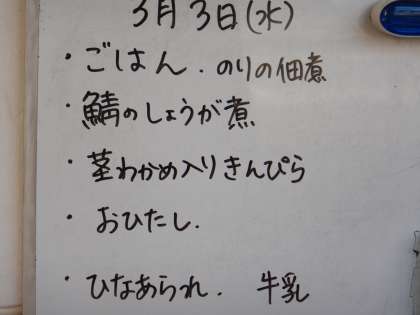 3月3日(水)
・ごはん.のりの佃煮
・鯖のしょうが煮
・茎わかめ入りきんぴら
・おひたし.
・ひなあられ. 牛乳